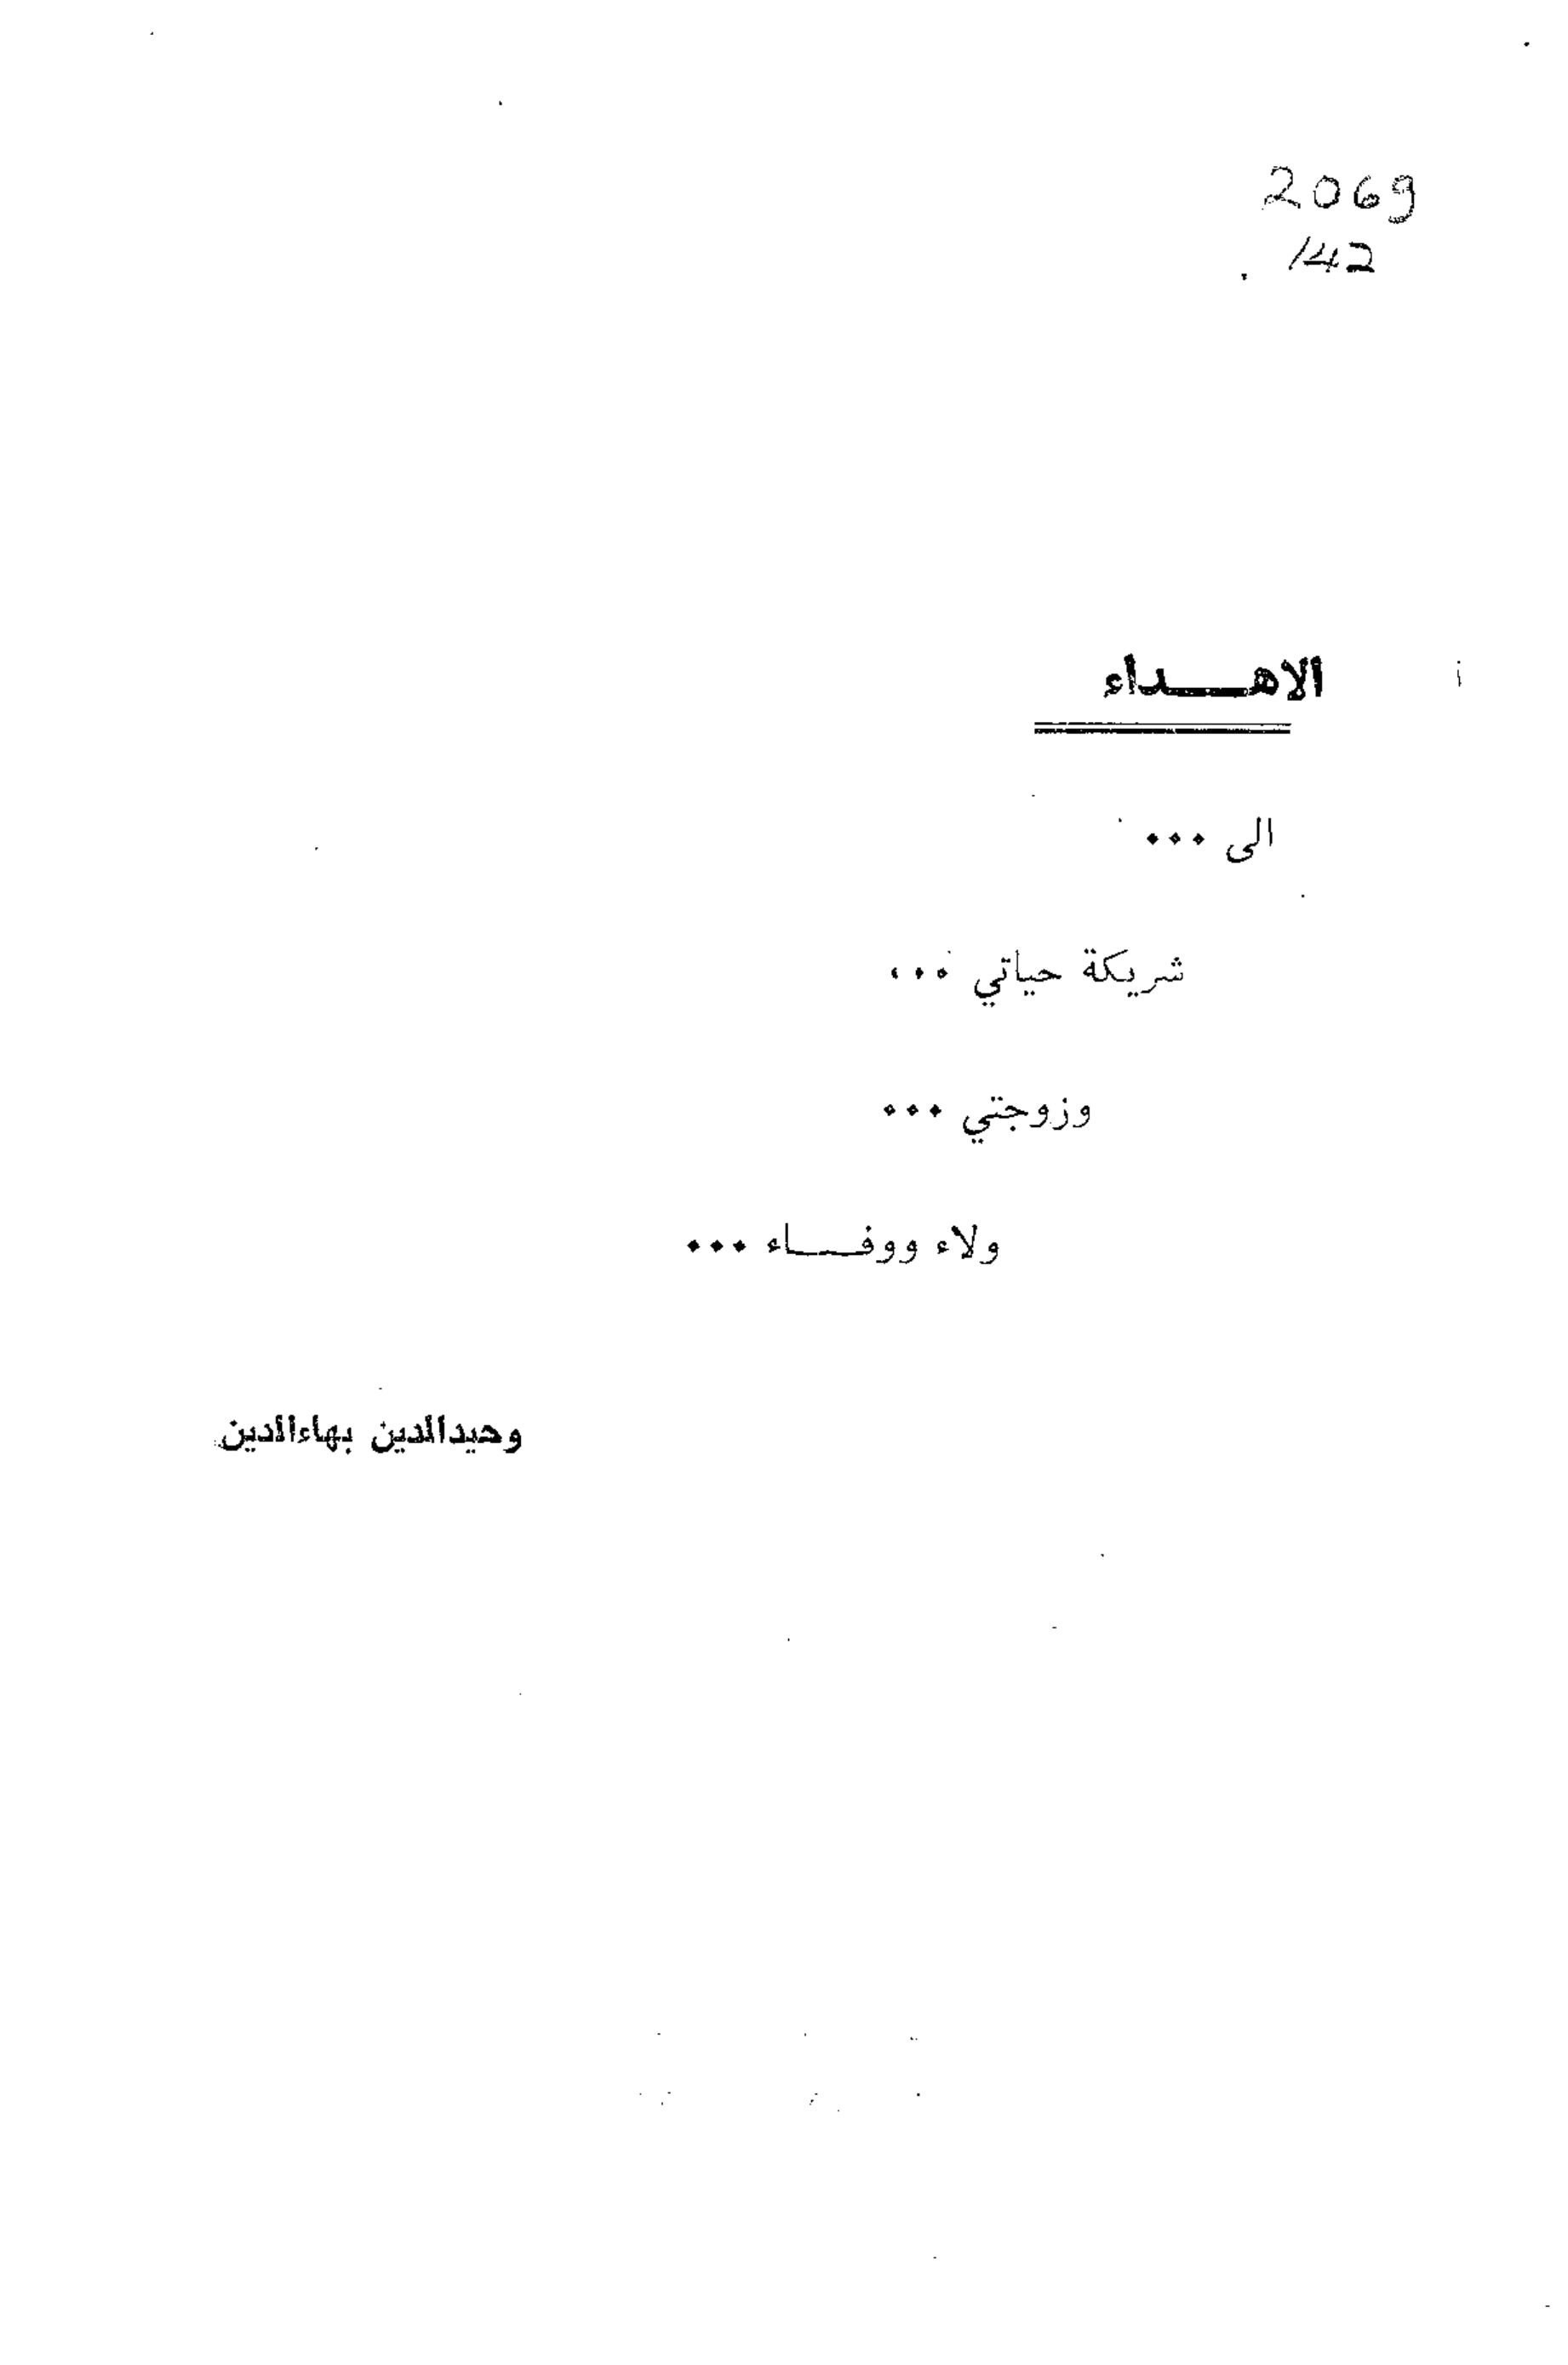 2069
.142
الاهـــداء
الى ...
شريكة حياتي ...
وزوجتي ...
ولاء ووفـــاء ...
وحيدالدين بهاءالدين